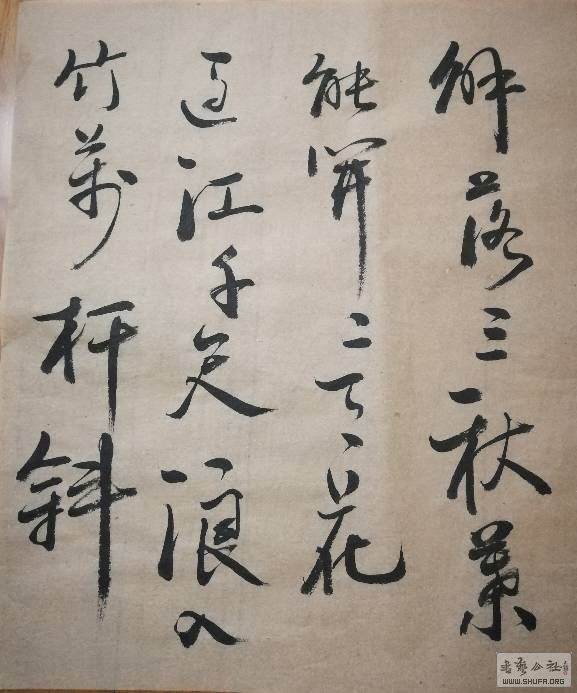 解落三秋葉
能開二月花
過江千尺浪入
竹萬杆斜
書藝公社
WWW.SHUFA.ORG